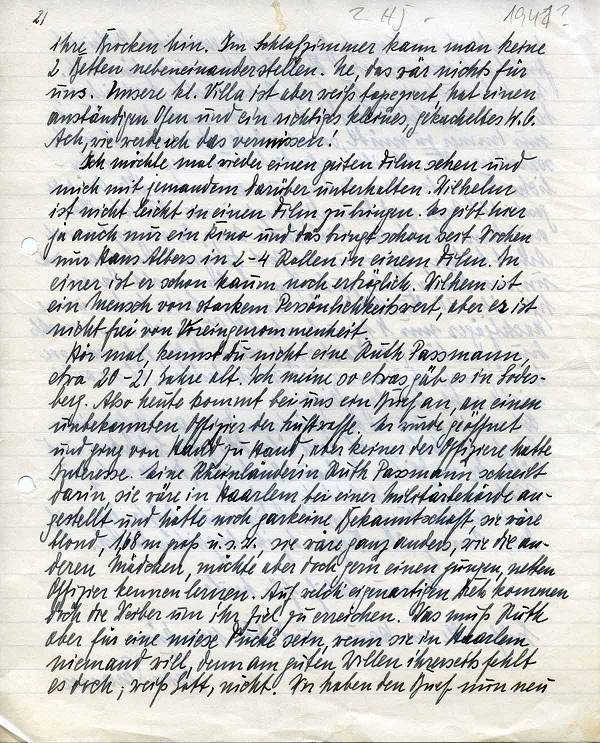 21
2. Hj. 1942?
ihre Brocken hin. Im Schlafzimmer kann man keine
2 Betten nebeneinanderstellen. Ne, das wär nichts für
uns. Unsere kl. Villa ist aber weiß tapeziert, hat einen
anständigen Ofen und ein richtiges kleines, gekacheltes W.C.
Ach, wie werde ich das vermissen!
Ich möchte mal wieder einen guten Film sehen und
mich mit jemandem darüber unterhalten. Wilhelm
ist nicht leicht in einen Film zu bringen. Es gibt hier
ja auch nur ein Kino und das bringt schon seit Wochen
nur Hans Albers in 2-4 Rollen in einem Film. In
einer ist er schon kaum noch erträglich. Wilhelm ist
ein Mensch von starkem Persönlichkeitswert, aber er ist
nicht frei von Voreingenommenheit
Hör mal, kennst du nicht eine Ruth Passmann,
etwa 20-21 Jahre alt. Ich meine so etwas gäb es in Godes-
berg. Also heute kommt bei uns ein Brief an, an einen
unbekannten Offizier der Luftwaffe. Er wurde geöffnet
und ging von Hand zu Hand, aber keiner der Offiziere hatte
Interesse. Eine Rheinländerin Ruth Passmann schreibt
darin, sie wäre in Haarlem bei einer Militärbehörde an-
gestellt und hätte noch garkeine Bekanntschaft, sie wäre
blond, 1,68 m groß u.s.w., sie wäre ganz anders, wie die an-
deren Mädchen, möchte aber doch gern einen jungen, netten
Offizier kennen lernen. Auf welch eigenartigen Wegen kommen
doch die Weiber um ihr Ziel zu erreichen. Was muß Ruth
aber für eine miese Mücke sein, wenn sie in Haarlem
niemand will, denn am guten Willen ihrerseits fehlt
es doch, weiß Gott, nicht. Wir haben den Brief nun neu